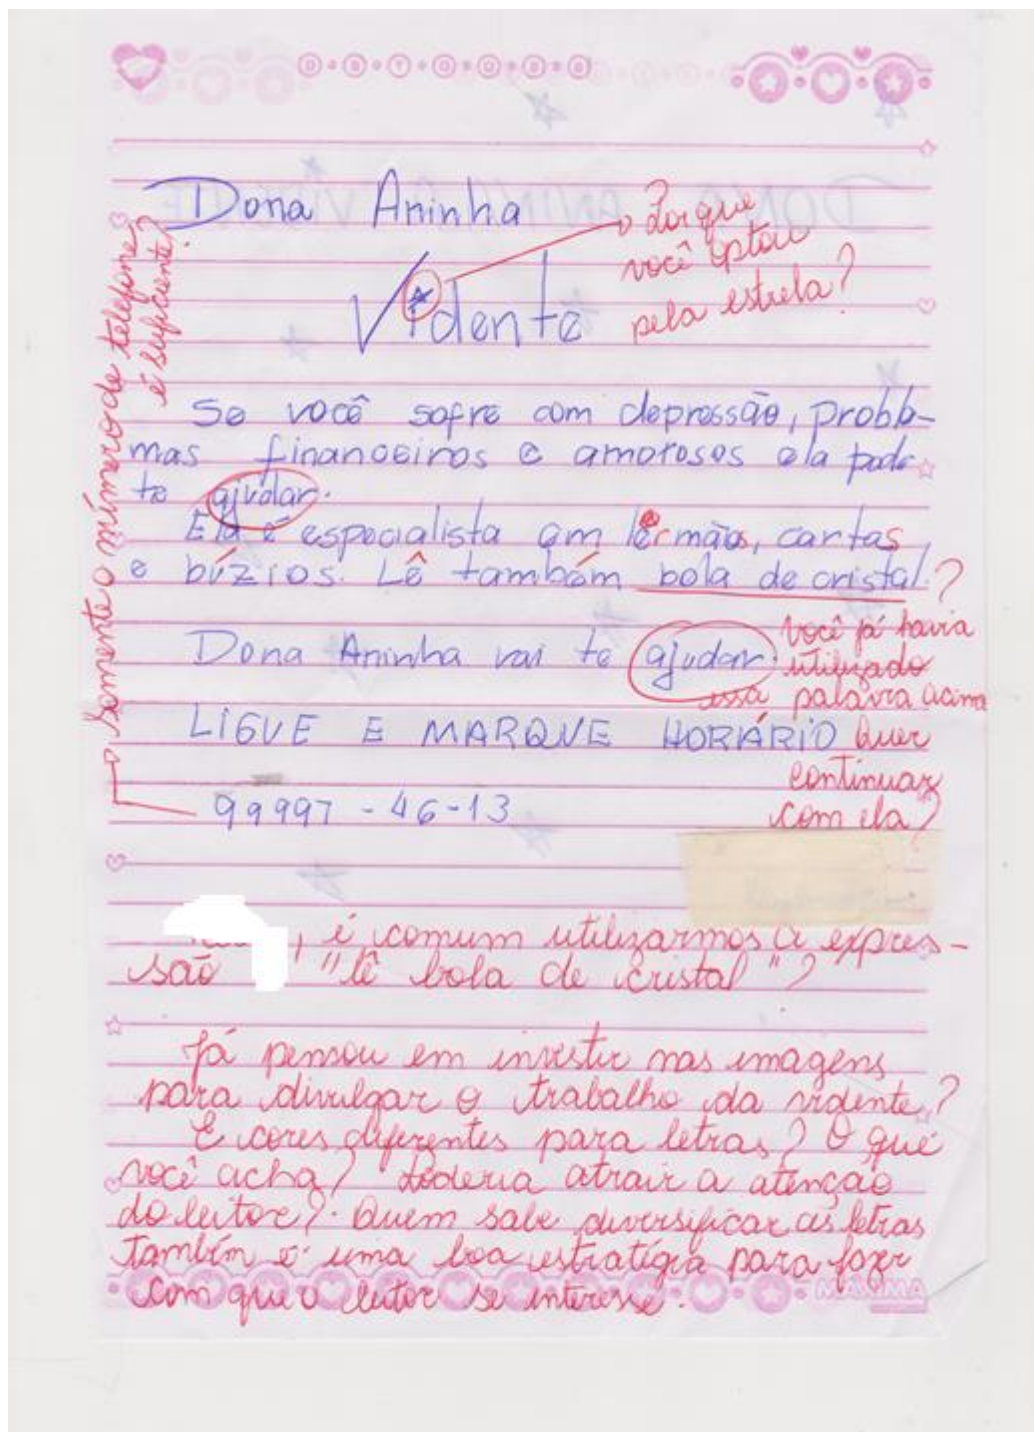 Dona Aninha
Vidente
Por que
você optou
pela estrela?
Somente o número de telefone
é suficiente?
Se você sofre com depressão, proble-
mas financeiros e amorosos ela pode
te ajudar.
Ela é especialista em ler mãos, cartas,
e búzios. Lê também bola de cristal.?
Dona Aninha vai te ajudar.
você já havia
utilizado
essa palavra acima
Quer
continuar
com ela?
LIGUE E MARQUE HORÁRIO
99997-46-13
, é comum utilizarmos a expres-
são "lê bola de cristal"?
Já pensou em investir nas imagens
para divulgar o trabalho da vidente?
E cores diferentes para letras? O que
você acha? Poderia atrair a atenção
do leitor?. Quem sabe diversificar as letras
também é uma boa estratégia para fazer
com que o leitor se interesse.
MÁXIMA